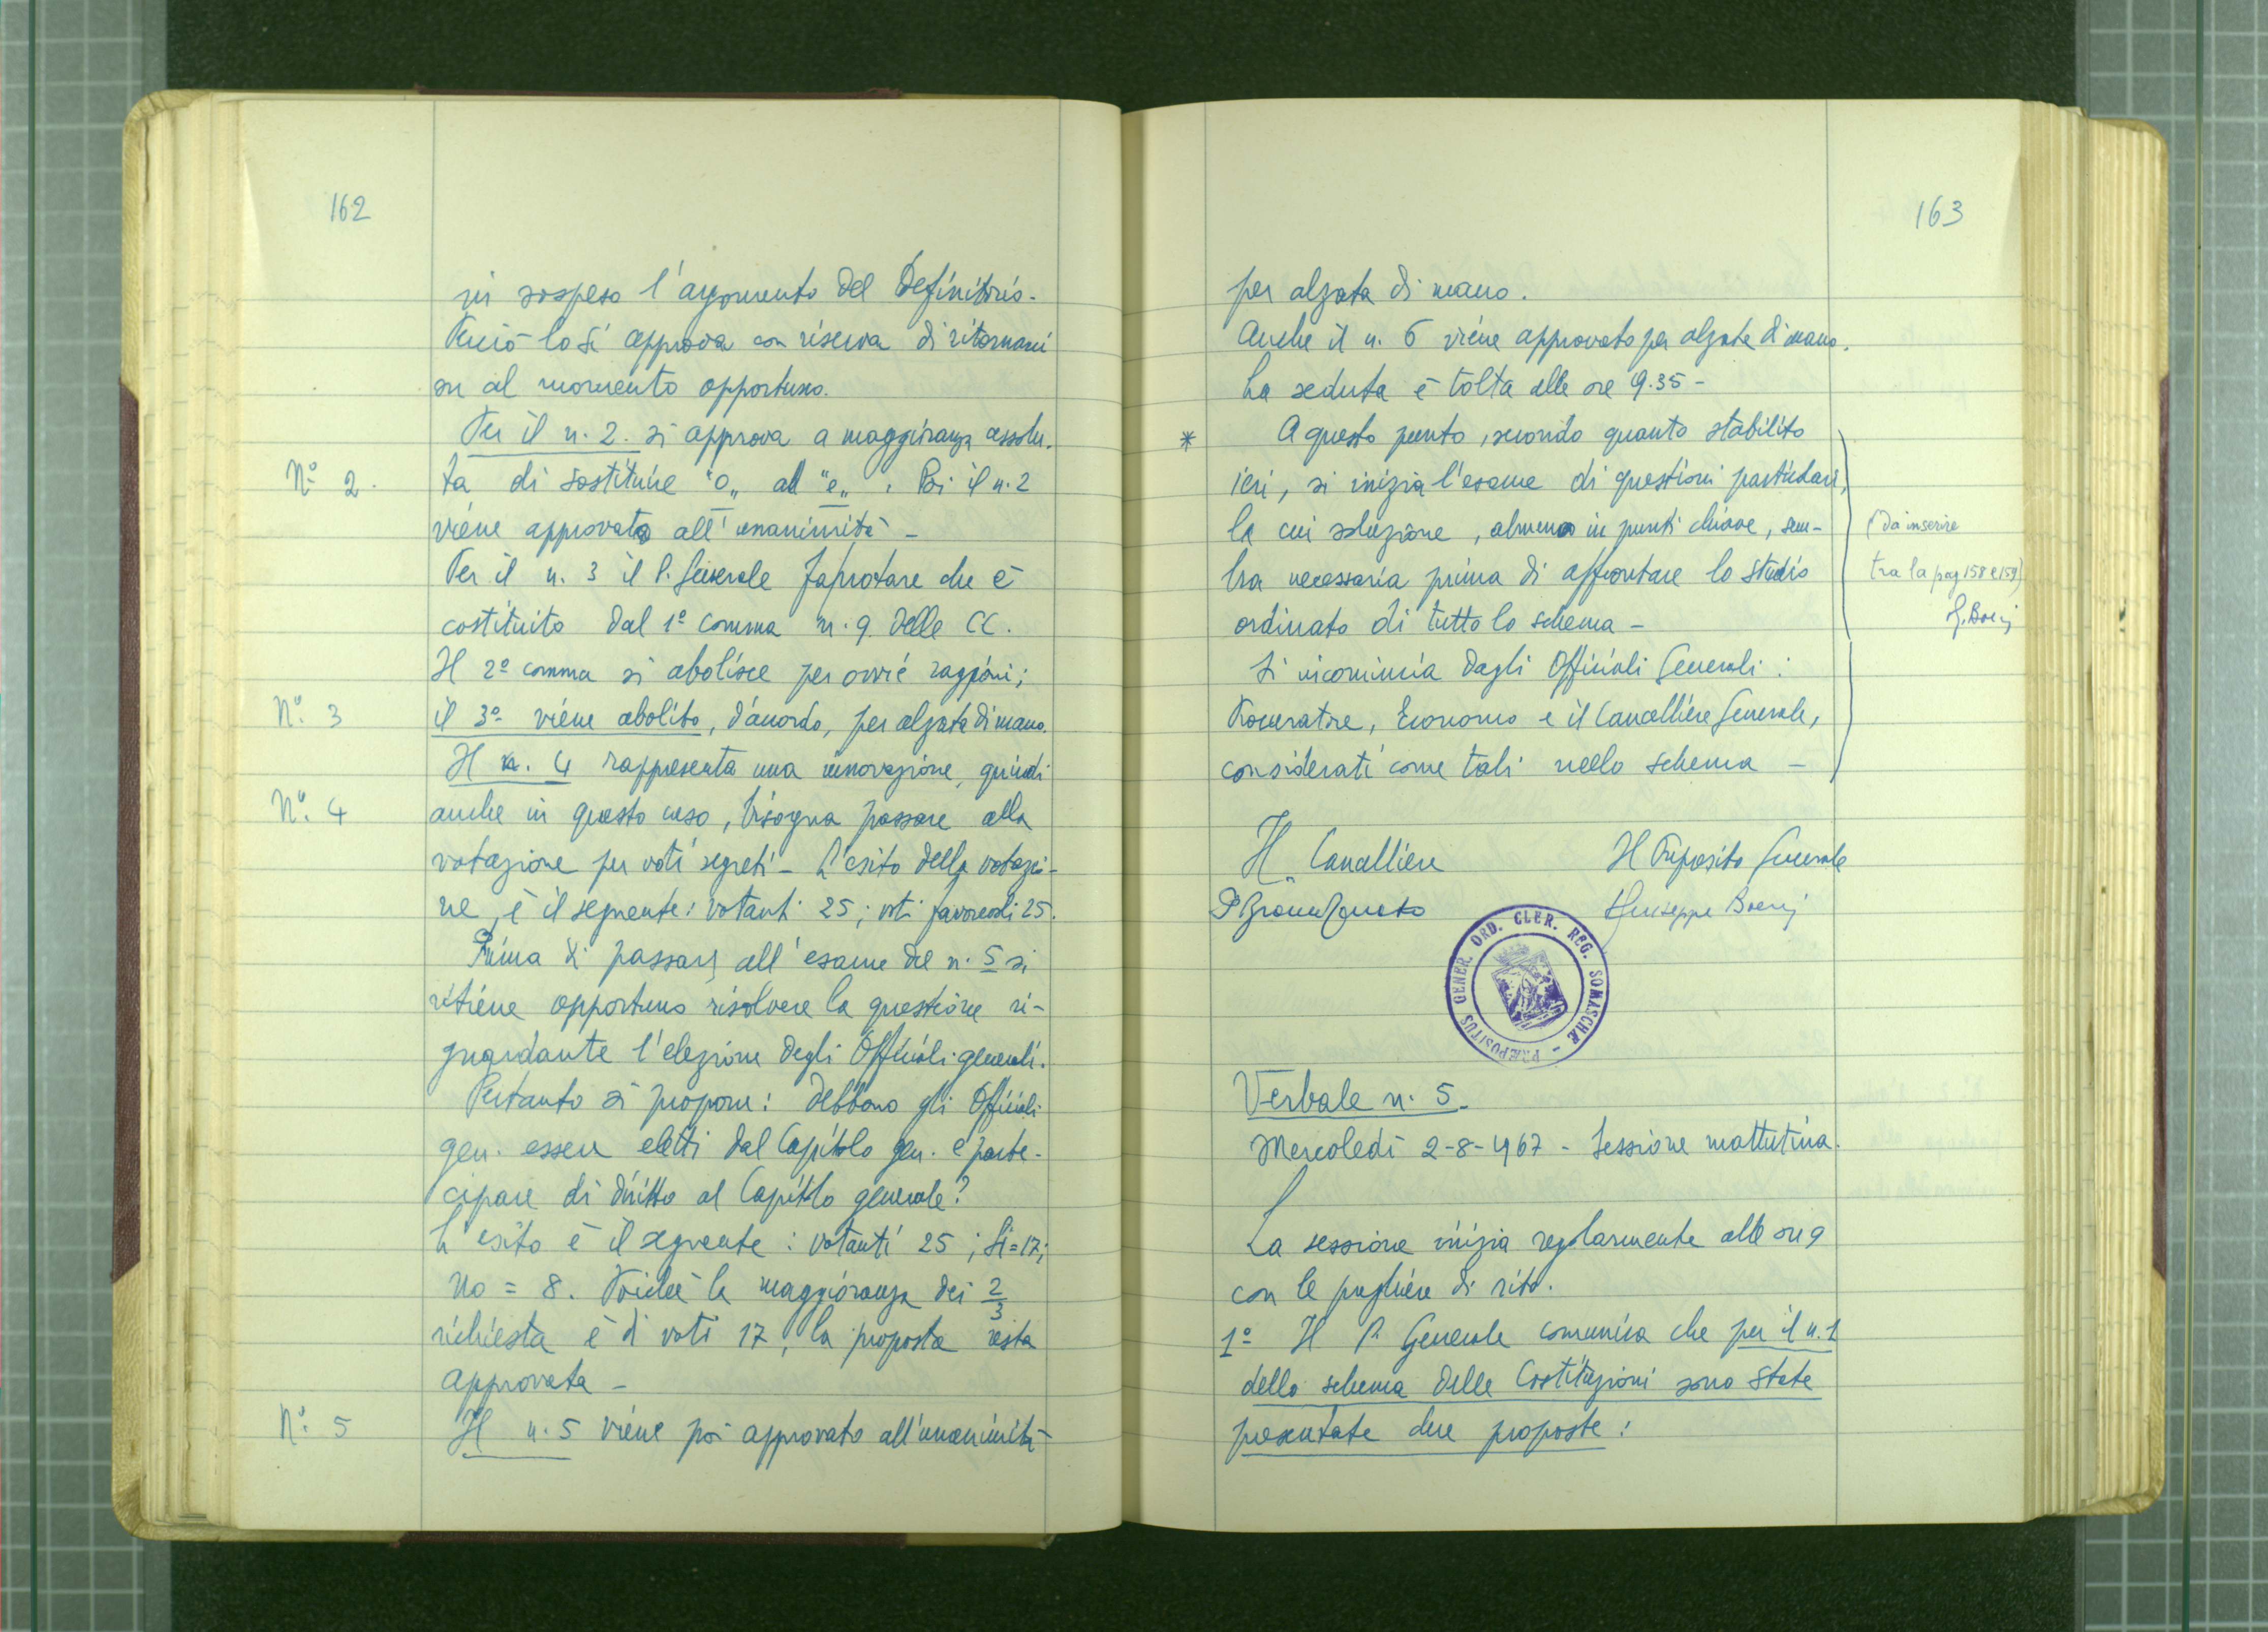 162
in sospeso l'argomento del Definitorio.
Perciò lo si approva con riserva di ritornarci
su al momento opportuno.
Per il n. 2. si approva a maggioranza assolu-
Nº 2.
ta di sostituire "o„ ad "e„. Poi il n. 2
viene approvato all'unanimità -
Per il n. 3 il P. Generale fa notare che è
costituito dal 1º comma n. 9 delle CC.
Il 2º comma si abolisce per ovvie ragioni;
Nº. 3
il 3º viene abolito, d'accordo, per alzata di mano.
Il n. 4 rappresenta una innovazione, quindi
Nº. 4
anche in questo caso, bisogna passare alla
votazione per voti segreti - L'esito della votazio-
ne, è il seguente: votanti 25; voti favorevoli 25.
Prima di passare all'esame del n. 5 si
ritiene opportuno risolvere la questione ri-
guardante l'elezione degli Officiali generali.
Pertanto si propone: debbono gli Officiali
gen. essere eletti dal Capitolo gen. e parte-
cipare di diritto al Capitolo generale?
L'esito è il seguente: votanti 25; Si=17;
No = 8. Poiché la maggioranza dei 2/3
richiesta è di voti 17, la proposta resta
approvata -
Nº. 5
Il n. 5 viene poi approvato all'unanimità
163
per alzata di mano.
Anche il n. 6 viene approvato per alzata di mano.
La seduta è tolta alle ore 9.35 -
* A questo punto, secondo quanto stabilito
ieri, si inizia l'esame di questioni particolari,
la cui soluzione, almeno in punti chiave, sem-
(da inserire
bra necessaria prima di affrontare lo studio
tra la pag 158 e 159)
ordinato di tutto lo schema -
G. Boeri
Si incomincia dagli Officiali Generali:
Procuratore, Economo e il Cancelliere Generale,
considerati come tali nello schema -
Il Cancelliere
Il Preposito Generale
Giuseppe Boeri
PRÆPOSITUS GENER. ORD. CLER. REG. SOMASCHÆ -
Verbale n. 5.
Mercoledì 2-8-1967 - Sessione mattutina.
La sessione inizia regolarmente alle ore 9
con le preghiere di rito.
1º Il P. Generale comunica che per il n. 1
dello schema delle Costituzioni sono state
presentate due proposte: